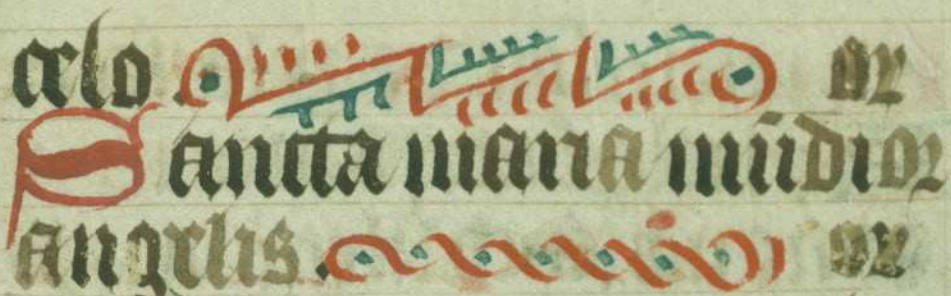 celo. or
Sancta maria mūdior
angelis. or